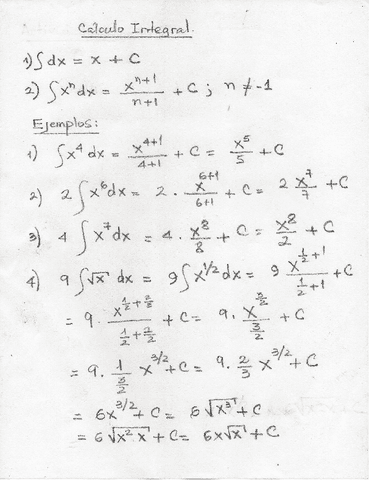 Calculo Integral.
1) ∫dx = x + C
2) ∫xⁿdx = xⁿ⁺¹/n+1 + C ; n ≠ -1
Ejemplos:
1) ∫x⁴dx = x⁴⁺¹/4+1 + C = x⁵/5 + C
2) 2∫x⁶dx = 2·x⁶⁺¹/6+1 + C = 2 x⁷/7 + C
3) 4∫x⁷dx = 4·x⁸/8 + C = x⁸/2 + C
4) 9∫√x dx = 9∫x^1/2 dx = 9 x^(1/2+1)/(1/2+1) + C
= 9·x^(1/2+2/2)/(1/2+2/2) + C = 9·x^(3/2)/(3/2) + C
= 9·1/(3/2) x^3/2 + C = 9·2/3 x^3/2 + C
= 6x^3/2 + C = 6√x³ + C
= 6√x² x + C = 6x√x + C